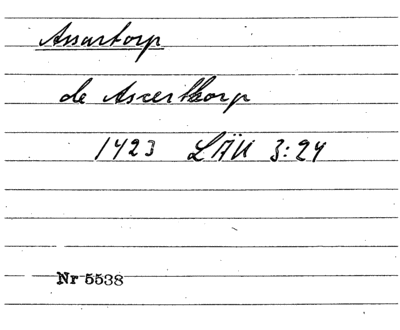 Assartorp
de Ascerthorp
1423 LÄU 3:24
Nr 5538